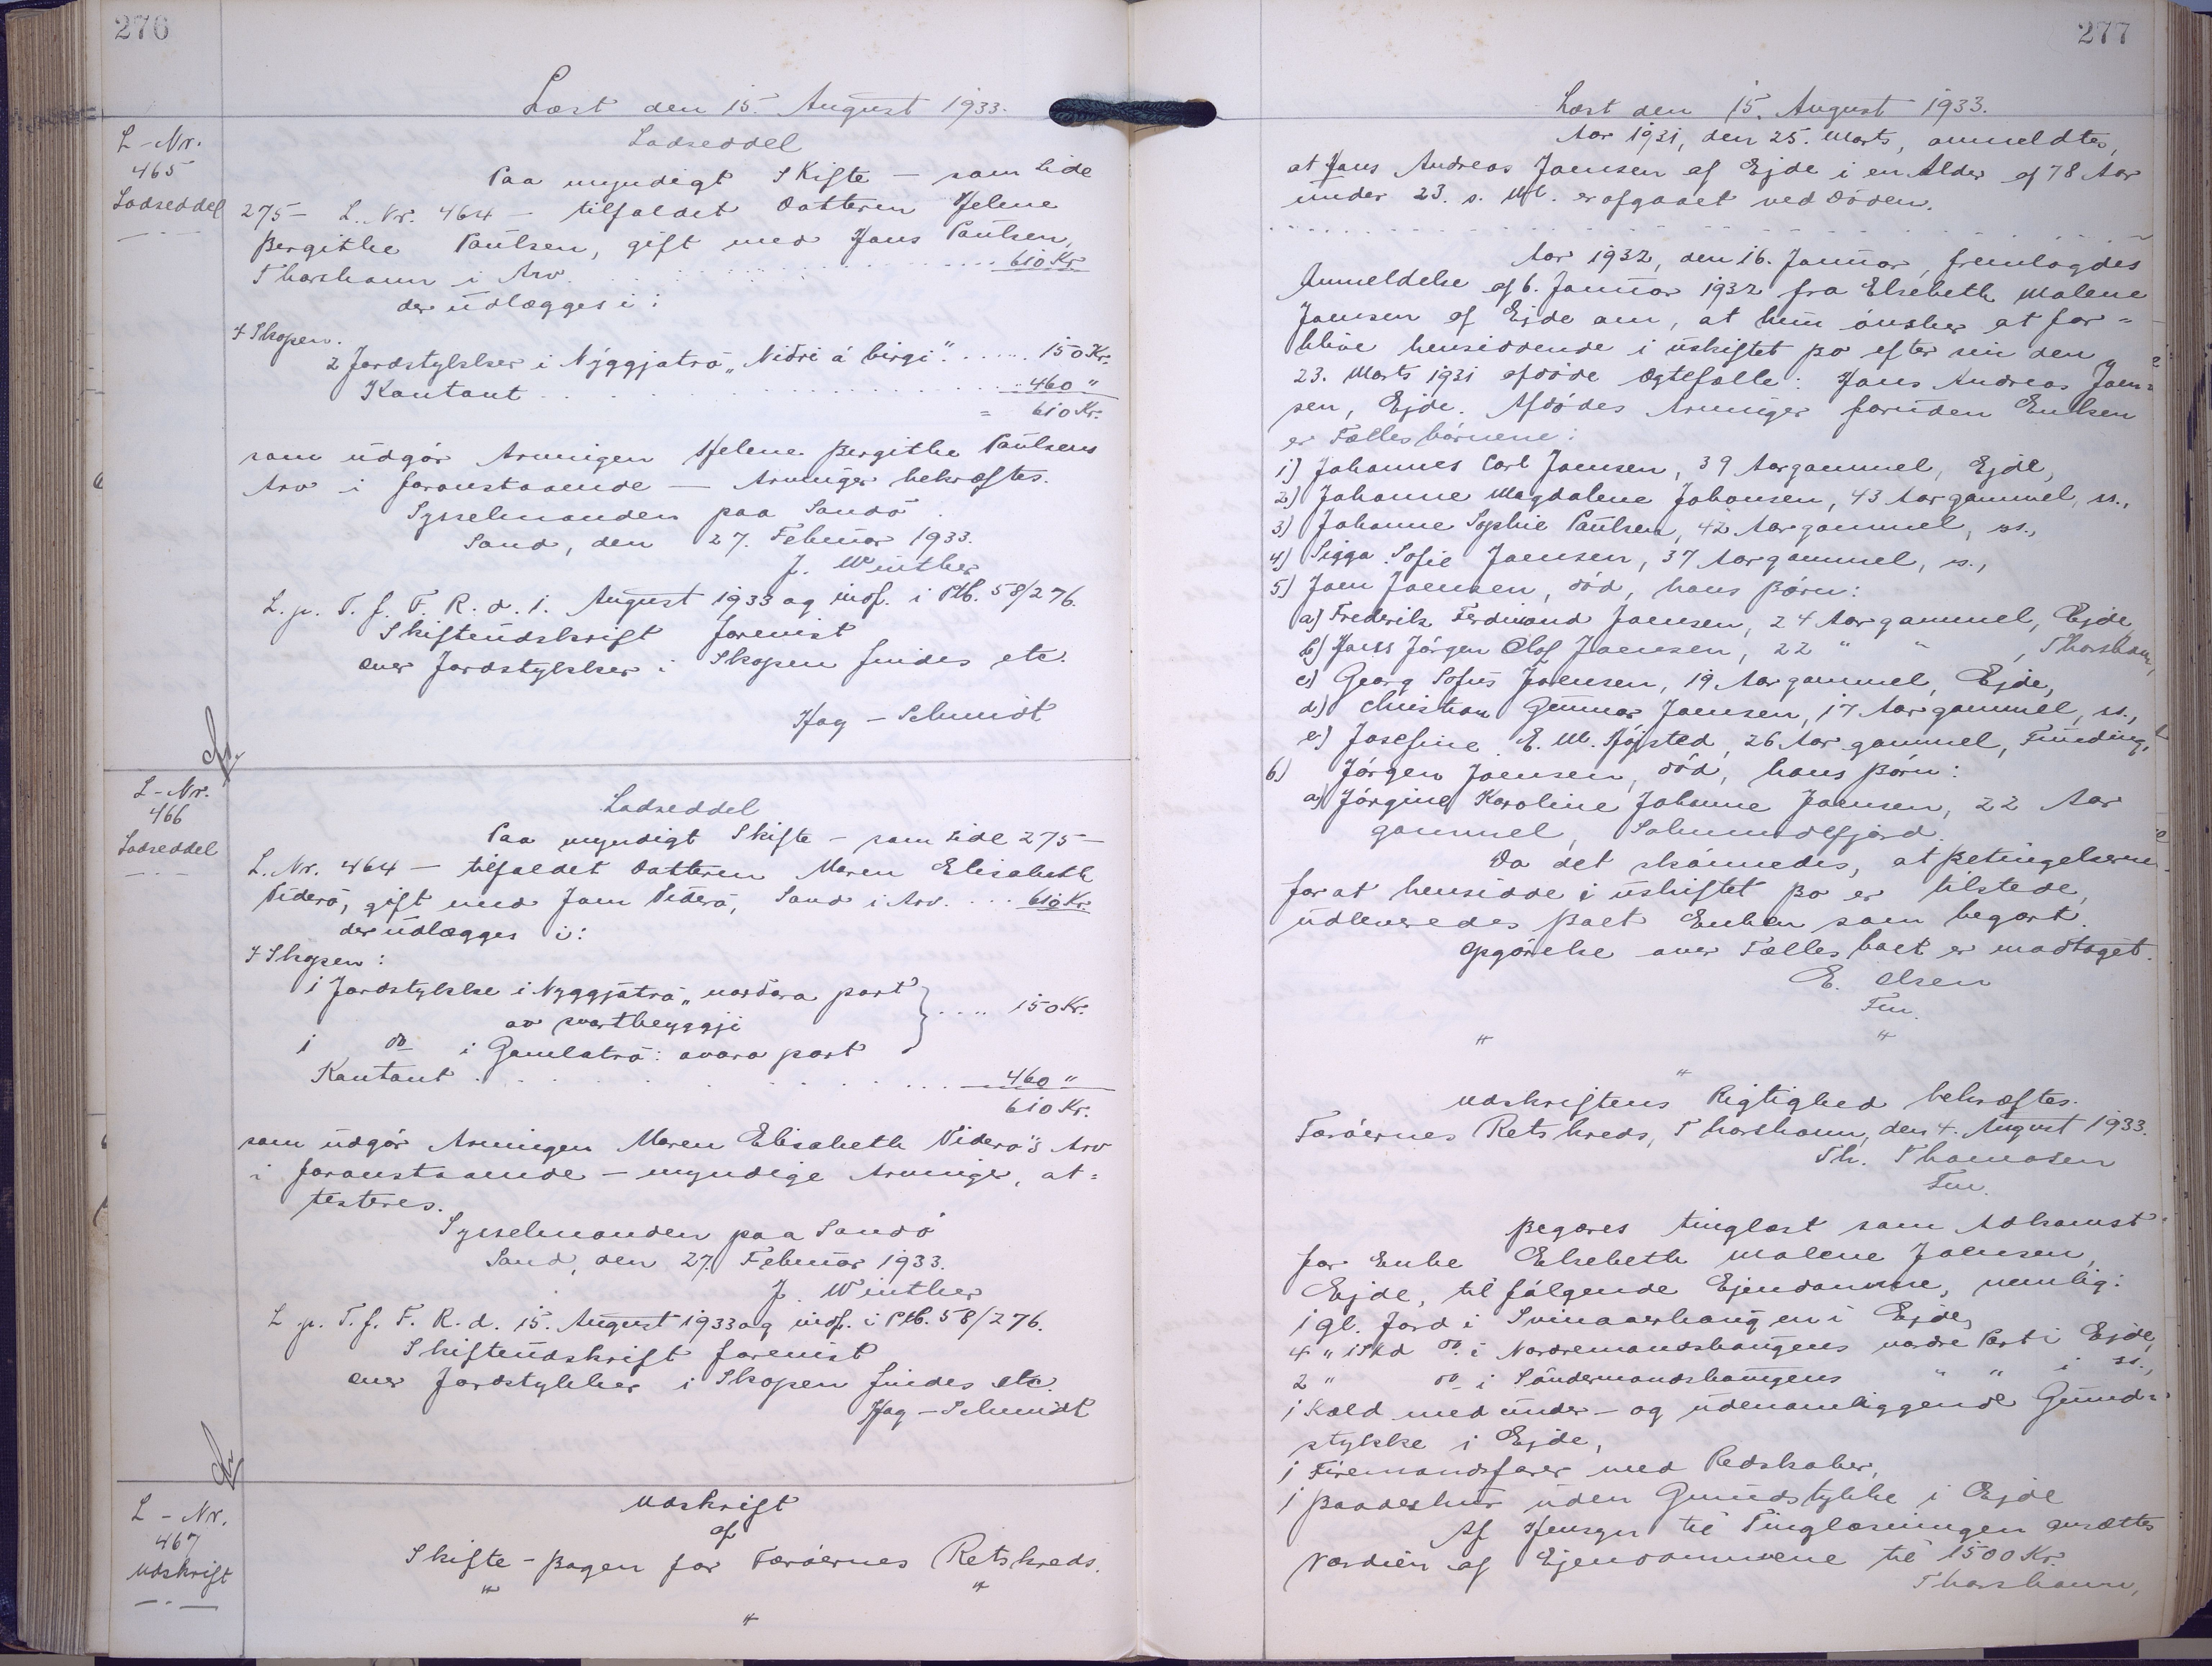 276
Læst den 15. August 1933.
L-Nr.
465
Lodseddel
Lodseddel
Paa myndigt Skifte - som Side
275 - L. Nr. 464 - tilfaldet Datteren Helene
Bergithe Paulsen, gift med Hans Paulsen,
Thorshavn i Arv. 610 Kr.
der udlægges i:
I Skopen.
2 Jordstykker i Nýggjatrö "Niðri á birgi". 150 Kr.
Kontant 460 "
= 610 Kr.
som udgör Arvingen Helene Bergithe Paulsens
Arv i foranstaaende - Arvinger bekræftes.
Sysselmanden paa Sandö.
Sand, den 27. Februar 1933.
J. Winther
L. p. T. f. F. R. d. 1. August 1933 og indf. i Ptb. 58/276.
Skifteudskrift forevist
over Jordstykker i Skopen findes etc.
Hag-Schmidt
L-Nr.
466
Lodseddel
Lodseddel
Paa myndigt Skifte - som Side 275 -
L. Nr. 464 - tilfaldet Datteren Maren Elisabeth
Viderö, gift med Joen Viderö, Sand i Arv. 610 Kr.
der udlægges i:
I Skopen:
1 Jordstykke i Nyggjatrö "norðara part
av svartheyggji
1 do i Gamlatrö: ovara part 150 Kr.
Kontant 460 "
610 Kr.
som udgör Arvingen Maren Elisabeth Viderö's Arv
i foranstaaende - myndige Arvinger, at=
testeres.
Sysselmanden paa Sandö
Sand, den 27. Februar 1933.
J. Winther
L. p. T. f. F. R. d. 15. August 1933 og indf. i Ptb. 58/276.
Skifteudskrift forevist
over Jordstykker i Skopen findes etc.
Hag-Schmidt
L-Nr.
467
Udskrift
Udskrift
af
Skifte-Bogen for Færöernes Retskreds.
" "
"
277
Læst den 15. August 1933.
Aar 1931, den 25. Marts, anmeldtes,
at Hans Andreas Joensen af Ejde i en Alder af 78 Aar
under 23. s. Md. er afgaaet ved Döden.
Aar 1932, den 16. Januar, fremlagdes
Anmeldelse af 6. Januar 1932 fra Elsebeth Malene
Joensen af Ejde om, at hun önsker at for=
blive hensiddende i uskiftet Bo efter sin den
23. Marts 1931 afdöde Ægtefælle: Hans Andreas Joen=
sen, Ejde. Afdödes Arvinger foruden Enken
er Fællesbörnene:
1) Johannes Carl Joensen, 39 Aar gammel, Ejde,
2) Johanne Magdalene Johansen, 43 Aar gammel, ss.,
3) Johanne Sophie Paulsen, 42 Aar gammel, ss.,
4) Sigga Sofie Joensen, 37 Aar gammel, ss.,
5) Joen Joensen, död, hans Börn:
a) Frederik Ferdinand Joensen, 24 Aar gammel, Ejde,
b) Hans Jörgen Olof Joensen, 22 " " , Thorshavn,
c) Georg Sofus Joensen, 19 Aar gammel, Ejde,
d) Christian Gunnar Joensen, 17 Aar gammel, ss.,
e) Josefine E. M. Höjsted, 26 Aar gammel, Funding,
6) Jörgen Joensen, död, hans Börn:
a) Jörgine Karoline Johanne Joensen, 22 Aar
gammel, Salmundefjord.
Da det skönnedes, at Betingelserne
for at hensidde i uskiftet Bo er tilstede,
udleveredes Boet Enken som begært.
Opgörelse over Fællesboet er modtaget.
E. Olsen
Fm.
" "
"
Udskriftens Rigtighed bekræftes.
Færöernes Retskreds, Thorshavn, den 4. August 1933.
Th. Thomasen
Fm.
Begæres tinglæst som Adkomst
for Enke Elsebeth Malene Joensen,
Ejde, til fölgende Ejendomme, nemlig:
1 gl. Jord i Svinaaerhaugen i Ejde,
4 " 1 Skd do. i Nordremandshaugens nordre Part i Ejde,
2 " do i Söndermandshaugens " " i ss.,
1 Kæld med under- og udenomliggende Grund=
stykke i Ejde,
1 Firemandsfarer med Redskaber,
1 Baadeshus uden Grundstykke i Ejde
Af Hensyn til Tinglæsningen ansættes
Værdien af Ejendommene til 1500 Kr.
Thorshavn,